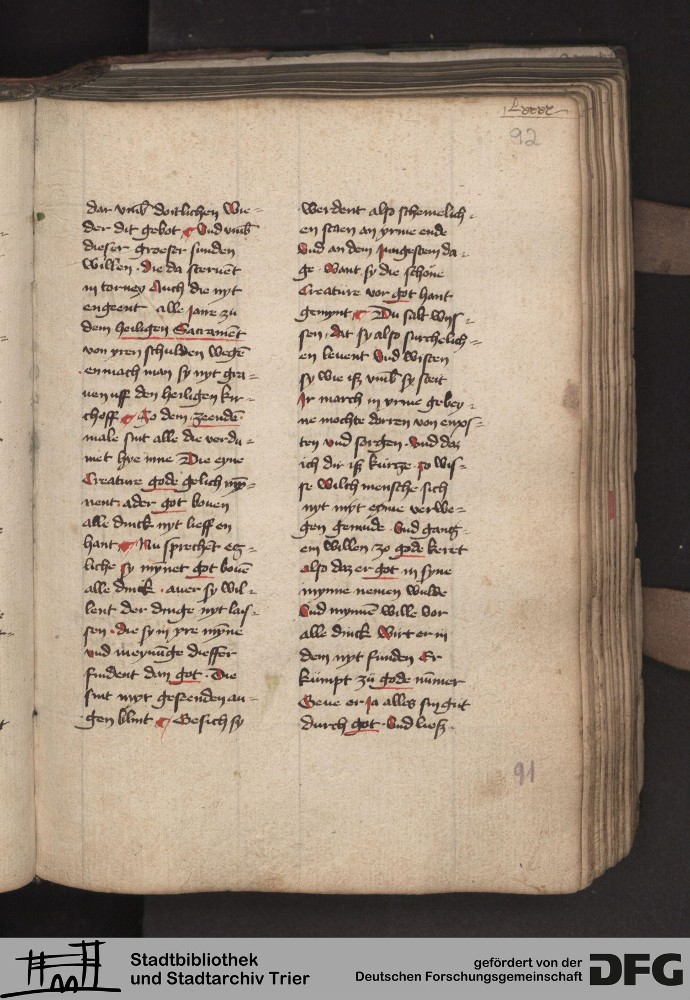 92
dar vmb doitlichen wie=
der dit gebot Vnd vmb
dieser groeser sunden
willen · Die da steruēt
in torney Auch die nyt
engeent alle Jare zu
dem heiligen Sacramēt
von yren schulden wegē
en mach man sy nyt gra=
uen uff den heiligen kir=
choff So dem zeenden
male sint alle die verdu=
met hye inne Die eyne
Creature gode gelich
nent ader got bouen
alle dinck nyt lieff en
hant Nu sprechēt eg=
liche sy mynet got bouē
alle dinck · auer sy wil=
lent der dinge nyt lais=
sen · die sy in yre mȳne
vnd meynūge dieffer
findent dan got · Die
sint myt geseenden au=
gen blint Gesich sy
werdent also schemelich=
en staen an yrme ende
Vnd an dem Jungestem da=
ge · Want sy die schone
Creature vor got hant
gemynt Du salt wys=
sen · dat sy also surchelich=
en leuent Vnd wisten
sy wie iß vmb sy steit
Ir march in yrme gebey=
ne mochte dorren von
ten vnd sorgen · Vnd daz
ich dir iß kurtze so wis=
se wilch mensche sich
nyt myt eyme verwe=
gen gemude · Vnd gantz=
em willen zo gode keret
also daz er got in syne
mynne nemen wulde
Vnd mynnē wille vor
alle dinck Wirt er in
dem nyt finden Er
kumpt zu gode nūmer
Geue er Ja alles sin gut
durch got · Vnd ließ
91
Stadtbibliothek
und Stadtarchiv Trier
gefördert von der
Deutschen Forschungsgemeinschaft
DFG